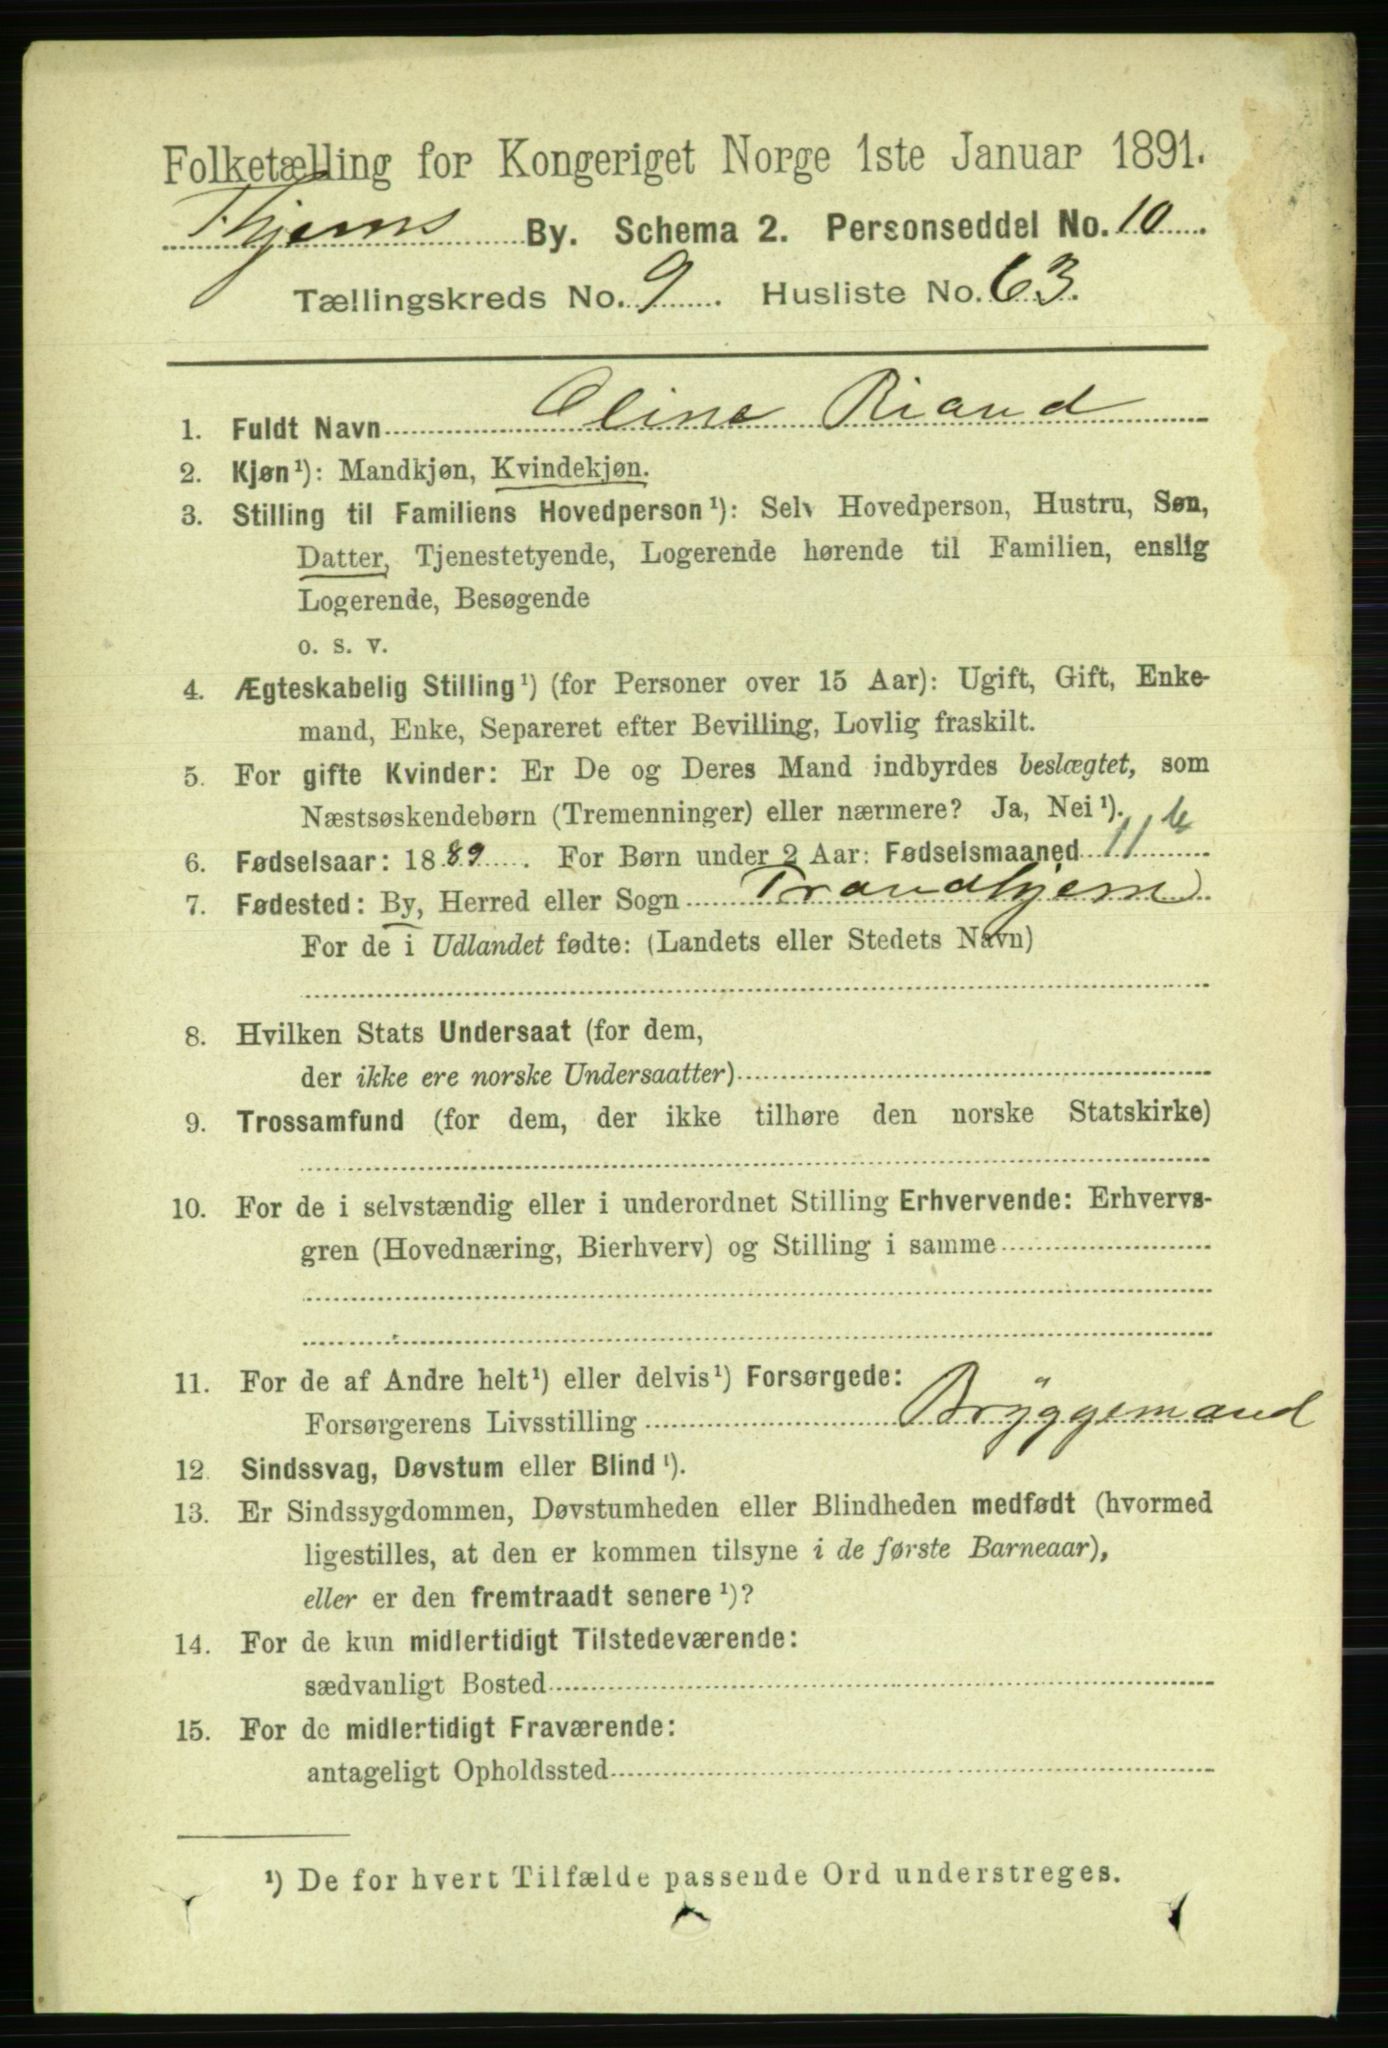 Folketælling for Kongeriget Norge 1ste Januar 1891.
Thjems By. Schema 2. Personseddel No. 10
Tællingskreds No. 9. Husliste No. 63.
1. Fuldt Navn Oline Riand
2. Kjøn¹): Mandkjøn, Kvindekjøn.
3. Stilling til Familiens Hovedperson¹): Selv Hovedperson, Hustru, Søn,
Datter, Tjenestetyende, Logerende hørende til Familien, enslig
Logerende, Besøgende
o. s. v.
4. Ægteskabelig Stilling¹) (for Personer over 15 Aar): Ugift, Gift, Enke-
mand, Enke, Separeret efter Bevilling, Lovlig fraskilt.
5. For gifte Kvinder: Er De og Deres Mand indbyrdes beslægtet, som
Næstsøskendebørn (Tremenninger) eller nærmere? Ja, Nei¹).
6. Fødselsaar: 1889. For Børn under 2 Aar: Fødselsmaaned 11
7. Fødested: By, Herred eller Sogn Trondhjem
For de i Udlandet fødte: (Landets eller Stedets Navn)
8. Hvilken Stats Undersaat (for dem,
der ikke ere norske Undersaatter)
9. Trossamfund (for dem, der ikke tilhøre den norske Statskirke)
10. For de i selvstændig eller i underordnet Stilling Erhvervende: Erhvervs-
gren (Hovednæring, Bierhverv) og Stilling i samme
11. For de af Andre helt¹) eller delvis¹) Forsørgede:
Forsørgerens Livsstilling Bryggemand
12. Sindssvag, Døvstum eller Blind¹).
13. Er Sindssygdommen, Døvstumheden eller Blindheden medfødt (hvormed
ligestilles, at den er kommen tilsyne i de første Barneaar),
eller er den fremtraadt senere¹)?
14. For de kun midlertidigt Tilstedeværende:
sædvanligt Bosted
15. For de midlertidigt Fraværende:
antageligt Opholdssted
¹) De for hvert Tilfælde passende Ord understreges.